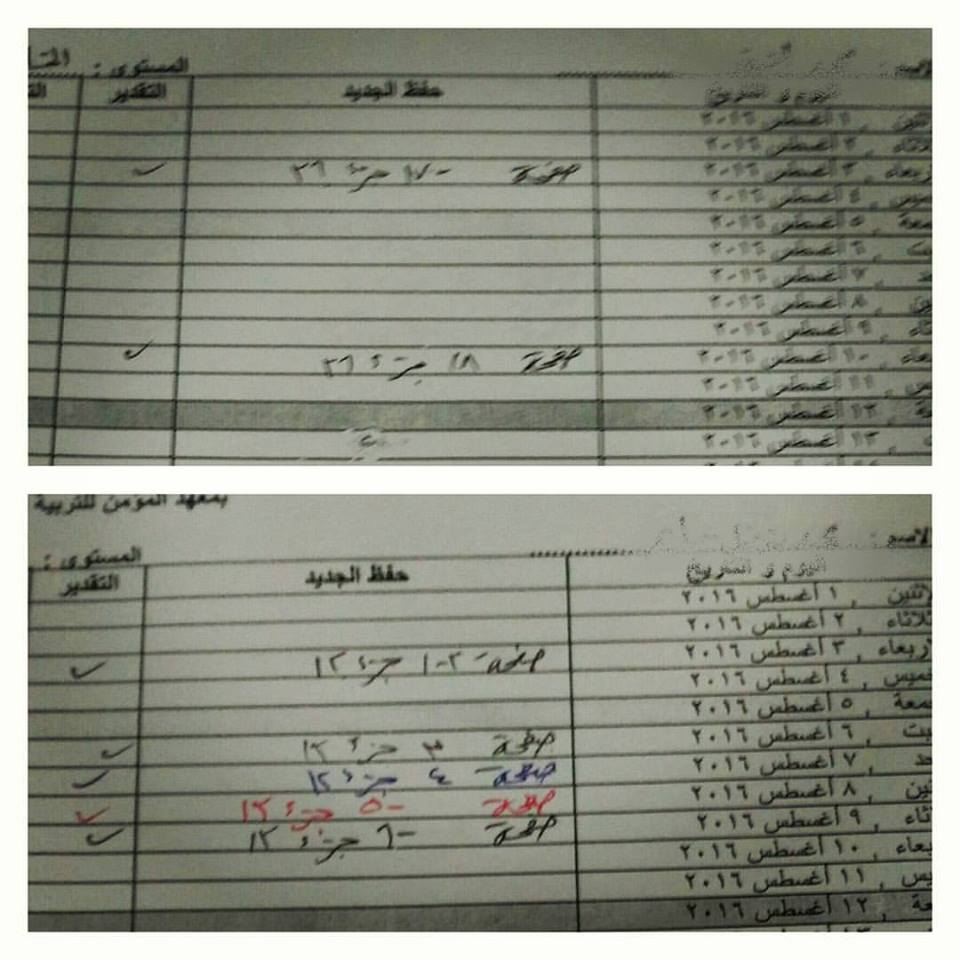 المستوى :
حفظ الجديد التقدير
اليوم و التاريخ
١ أغسطس ٢٠١٦
٢ أغسطس ٢٠١٦
٣ أغسطس ٢٠١٦ صفحة ١٧- جزء ٢٦ ✓
٤ أغسطس ٢٠١٦
٥ أغسطس ٢٠١٦
٦ أغسطس ٢٠١٦
٧ أغسطس ٢٠١٦
٨ أغسطس ٢٠١٦
٩ أغسطس ٢٠١٦
١٠ أغسطس ٢٠١٦ صفحة ١٨ جزء ٢٦ ✓
١١ أغسطس ٢٠١٦
١٢ أغسطس ٢٠١٦
١٣ أغسطس ٢٠١٦
بمعهد المؤمن للتربية
الاسم : المستوى :
اليوم و التاريخ حفظ الجديد التقدير
١ أغسطس ٢٠١٦
٢ أغسطس ٢٠١٦
٣ أغسطس ٢٠١٦ صفحة ١-٢ جزء ١٢ ✓
٤ أغسطس ٢٠١٦
٥ أغسطس ٢٠١٦
٦ أغسطس ٢٠١٦ صفحة ٣ جزء ١٢ ✓
٧ أغسطس ٢٠١٦ صفحة ٤ جزء ١٢ ✓
٨ أغسطس ٢٠١٦ صفحة ٥- جزء ١٢ ✓
٩ أغسطس ٢٠١٦ صفحة ٦- جزء ١٢ ✓
١٠ أغسطس ٢٠١٦
١١ أغسطس ٢٠١٦
١٢ أغسطس ٢٠١٦